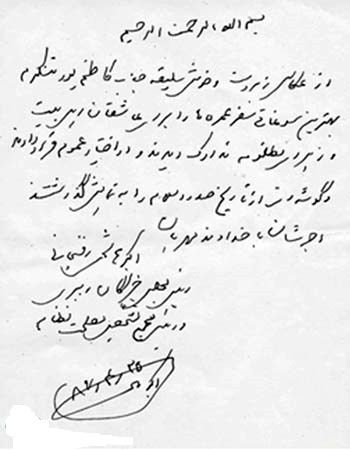 بسم الله الرحمن الرحیم
از عکاس زبردست و خوش سلیقه جناب کاظم پور متشکرم
بهترین سوغاتی سفر عمره ها را برای عاشقان اهل بیت
و زهرای مظلومه تدارک دیدند و در اختیار عموم قرار دادند
و گوشه ای از تاریخ صدر اسلام را به نمایش گذاشتند
اجرشان با خداوند مهربان
اکبر هاشمی رفسنجانی
رئیس مجلس خبرگان رهبری
و رئیس مجمع تشخیص مصلحت نظام